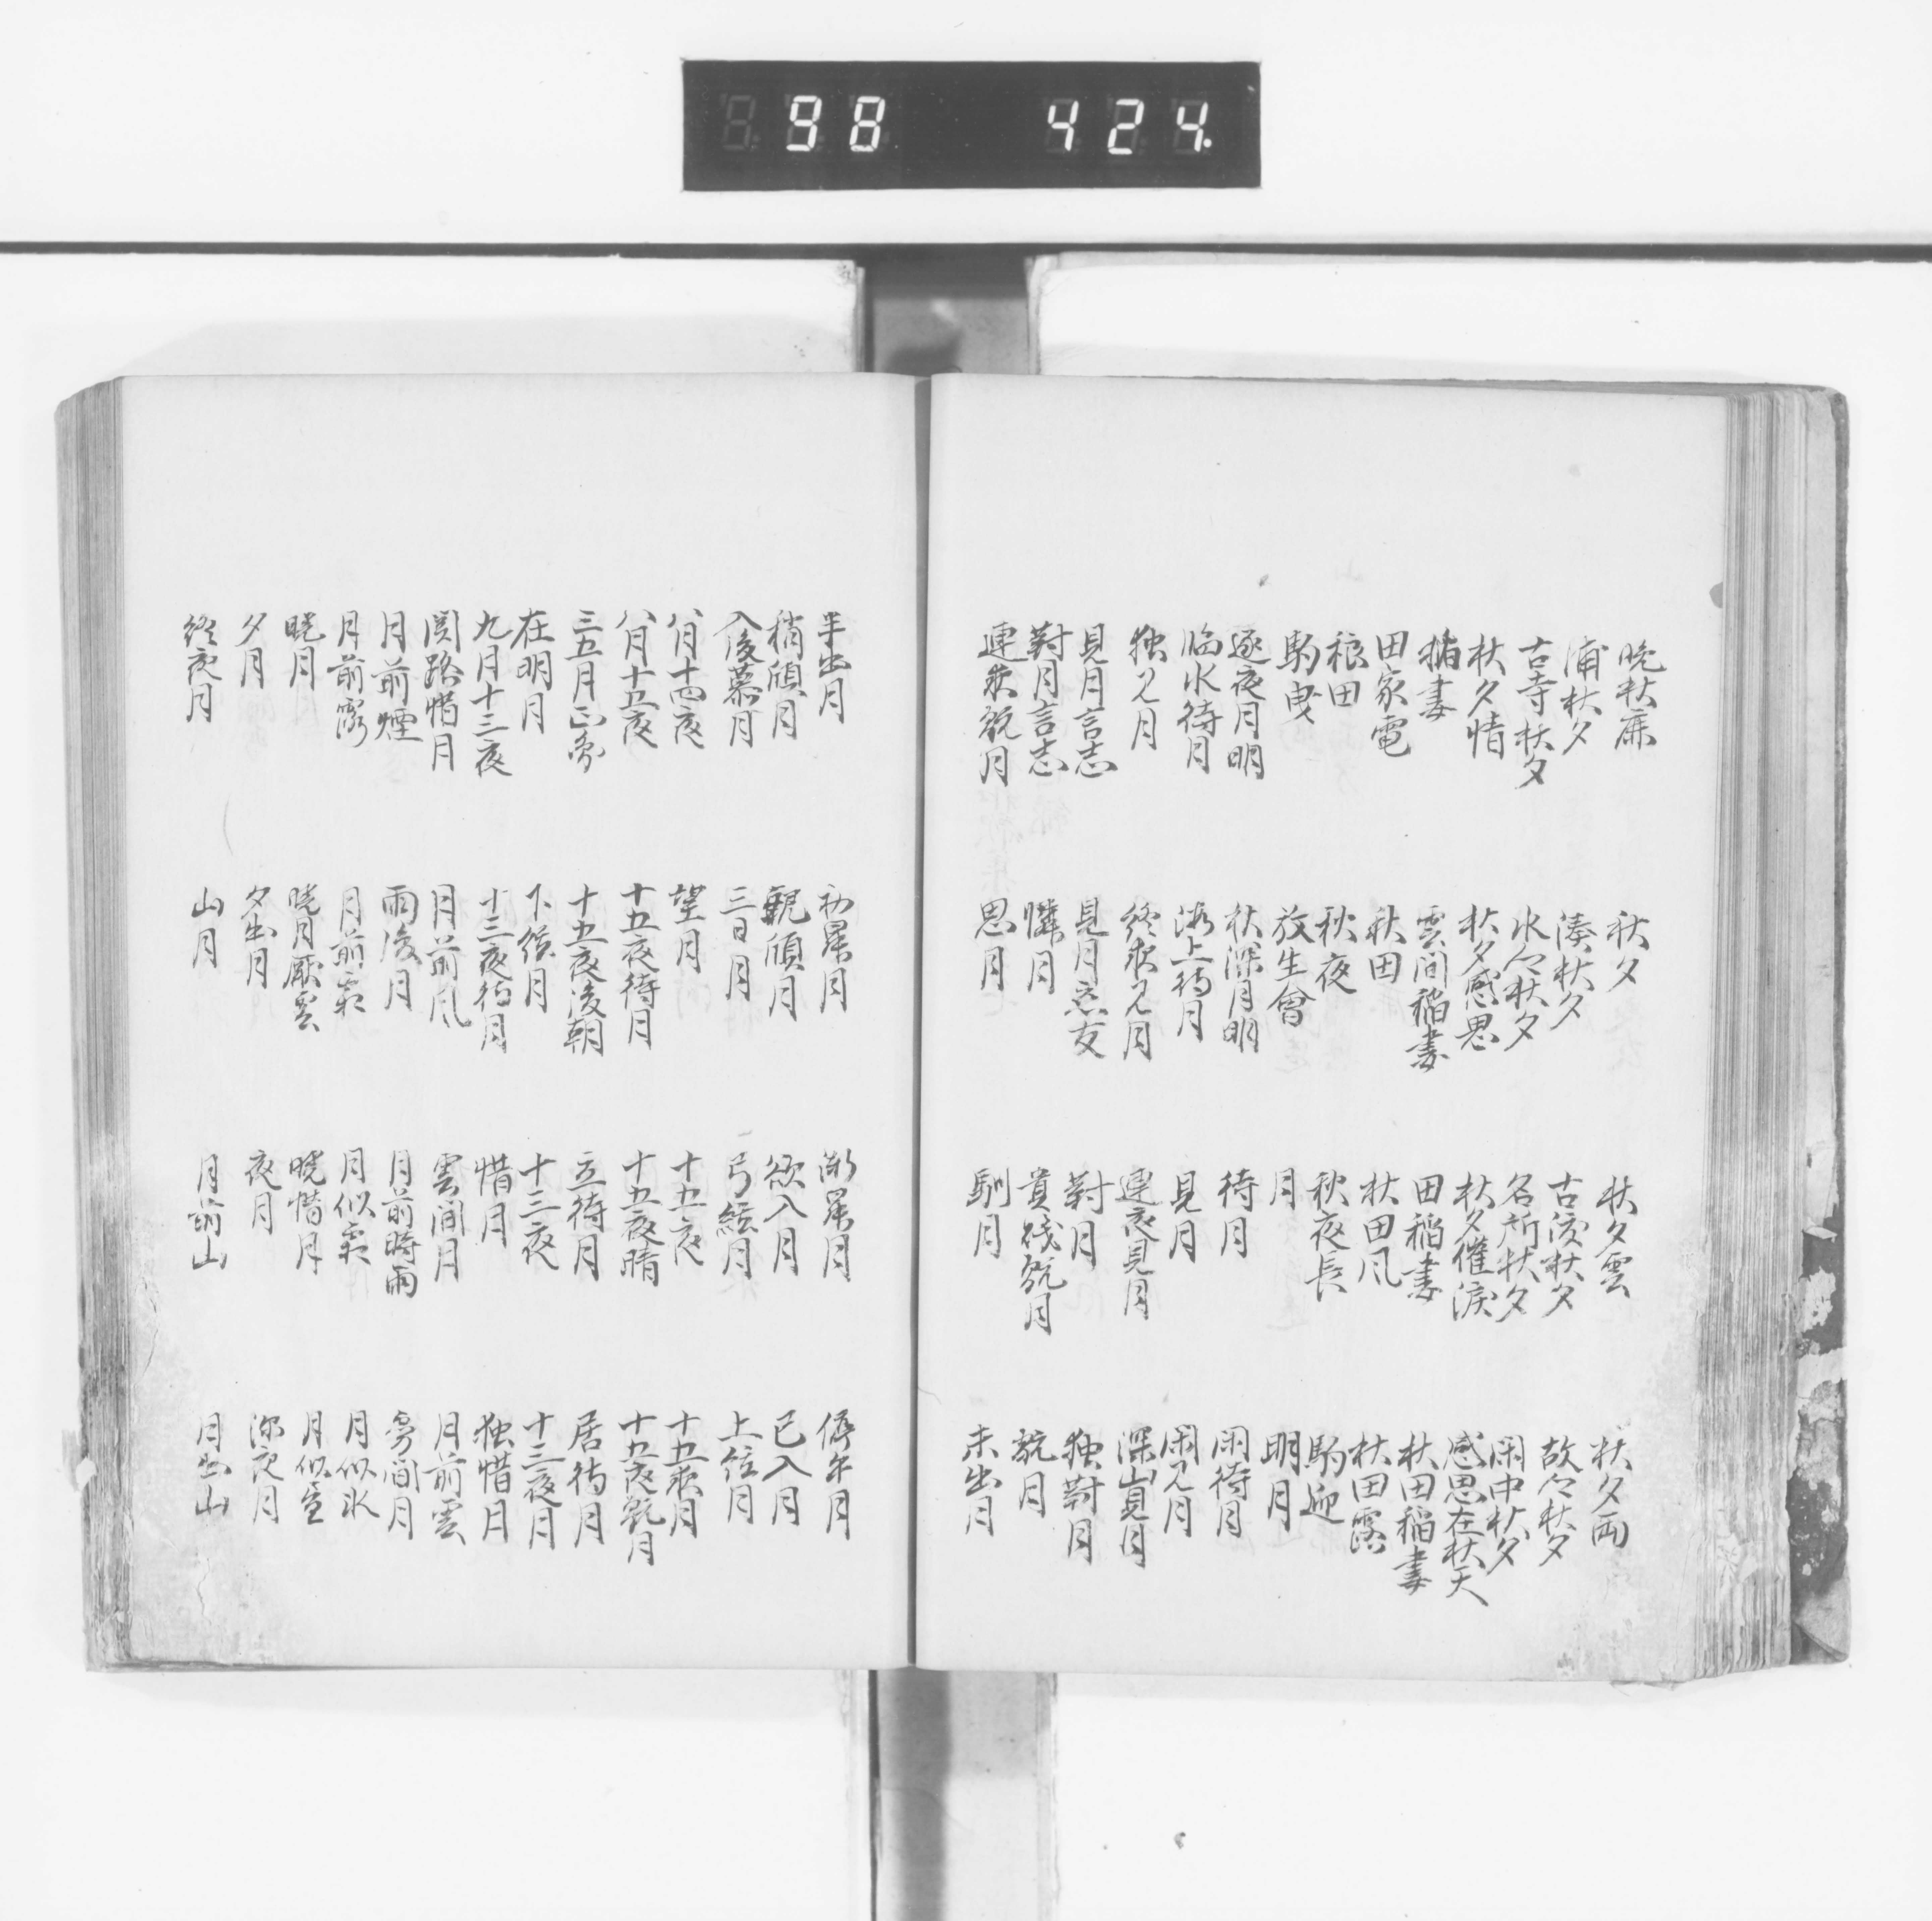 98 424
晩秋鹿 秋夕 秋夕雲 秋夕雨
浦秋夕 湊秋夕 古渡秋夕 故郷秋夕
古寺秋夕 水郷秋夕 名所秋夕 閑中秋夕
秋夕情 秋夕感思 秋夕催涙 感思在秋天
稲妻 雲間稲妻 田稲妻 秋田稲妻
田家電 秋田 秋田風 秋田露
稂田 秋夜 秋夜長 駒迎
駒曳 放生會 月 明月
逐夜月明 秋深月明 待月 閑待月
臨水待月 海上待月 見月 閑見月
独見月 終夜見月 連夜見月 深山見月
見月言志 見月恋友 對月 独對月
對月言志 憐月 貴賤翫月 翫月
連夜翫月 思月 馴月 未出月
半出月 初昇月 漸昇月 停午月
稍傾月 親傾月 欲入月 已入月
入後慕月 三日月 弓絃月 上絃月
八月十四夜 望月 十五夜 十五夜月
八月十五夜 十五夜待月 十五夜晴 十五夜翫月
三五月正円 十五夜後朝 立待月 居待月
在明月 下絃月 十三夜 十三夜月
九月十三夜 十三夜待月 惜月 独惜月
関路惜月 月前風 雲間月 月前雲
月前煙 雨後月 月前時雨 霧間月
月前露 月前霜 月似霜 月似氷
暁月 暁月厭雲 暁惜月 月似昼
夕月 夕出月 夜月 深夜月
終夜月 山月 月前山 月出山